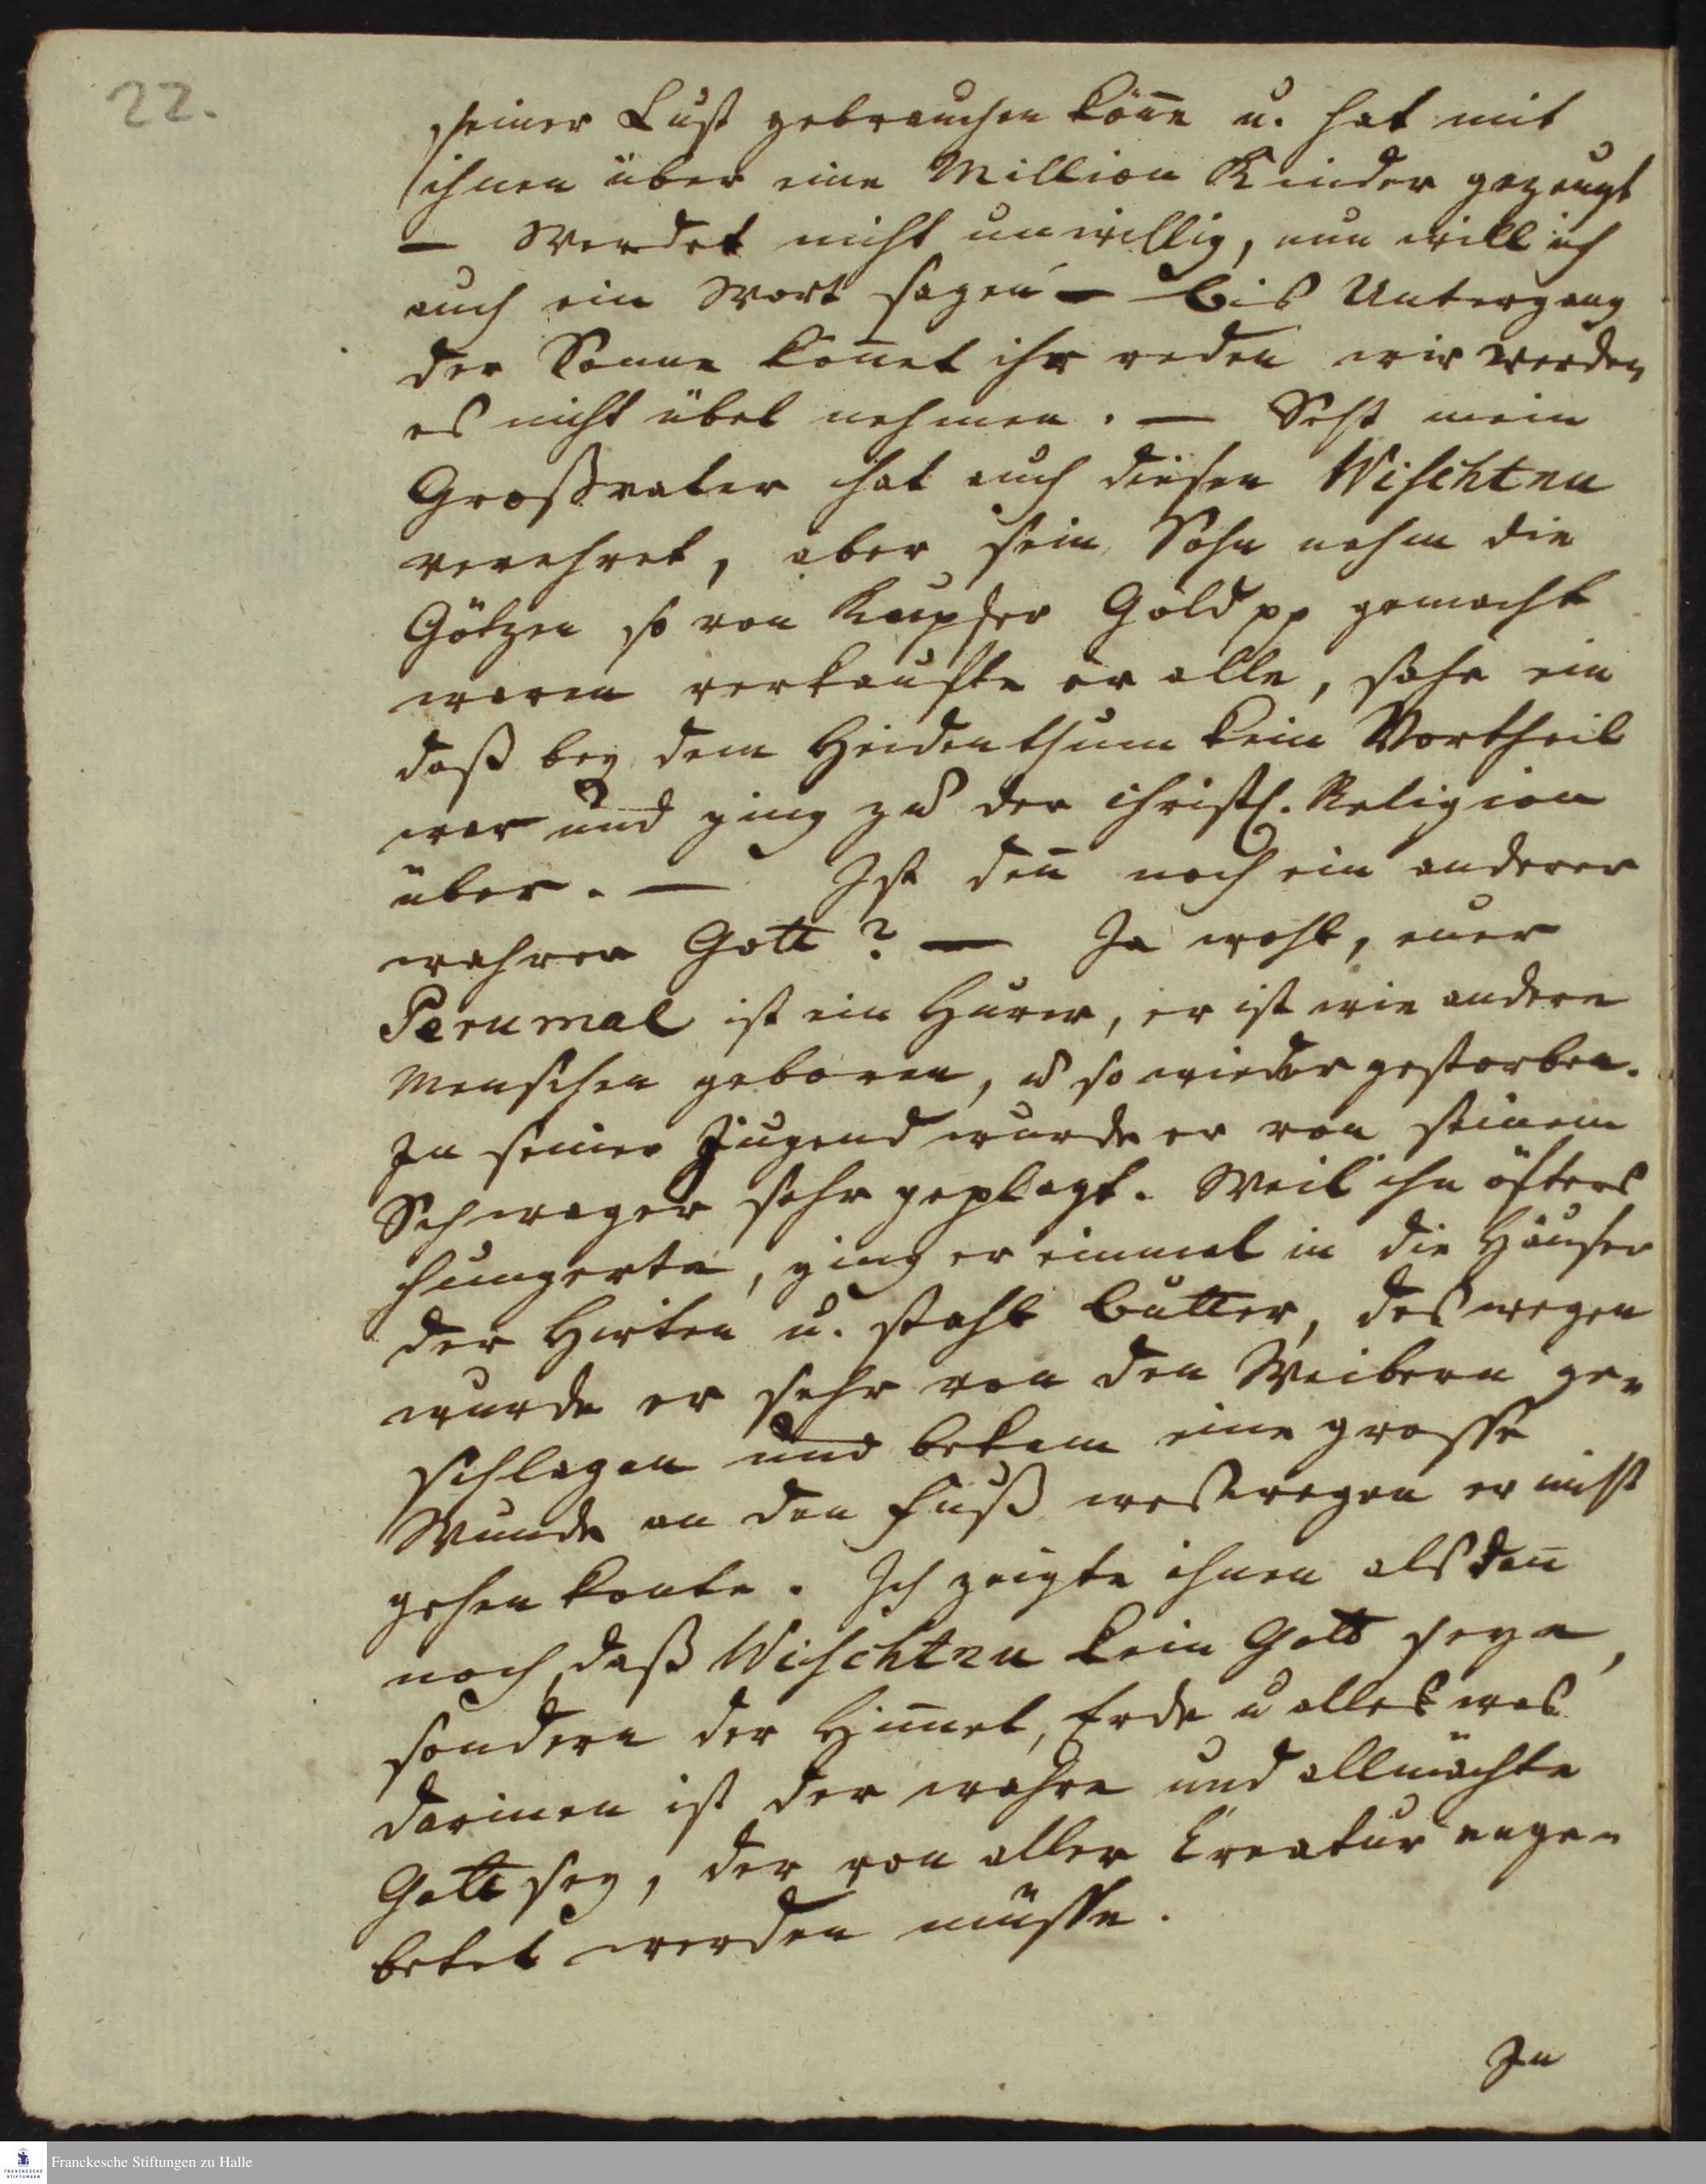 22.
seiner Lust gebrauchen kön̄e u. hat mit
ihnen über eine Million Kinder gezeugt
— Werdet nicht unwillig, nun will ich
auch ein Wort sagen — bis Untergang
der Sonne kön̄et ihr reden wir werden
es nicht übel nehmen. — Seht mein
Großvater hat auch diesen Wischtnu
verehret, aber sein Sohn nahm die
Götzen so von Kupfer Gold pp gemacht
waren verkaufte er alle, sahe ein
daß bey dem Heidenthum kein Vortheil
war und ging zu der christl. Religion
über. — Ist den̄ noch ein anderer
wahrer Gott? — Ja wohl, euer
Perumal ist ein Hurer, er ist wie andere
Menschen geboren, u so wieder gestorben.
In seiner Jugend wurde er von seinem
Schwager sehr geplagt. Weil ihn öfters
hungerte, ging er einmal in die Häuser
der Hirten u. stahl Butter, deswegen
wurde er sehr von den Weibern ge-
schlagen und bekam eine grosse
Wunde an den Fuß weswegen er nicht
gehen konte. Ich zeigte ihnen alsdan̄
noch, daß Wischtnu kein Gott seye,
sondern der Him̄el, Erde u alles was
darinen ist der wahre und allmächte
Gott sey, der von aller Creatur ange-
betet werden müsse.
In
Franckesche Stiftungen zu Halle